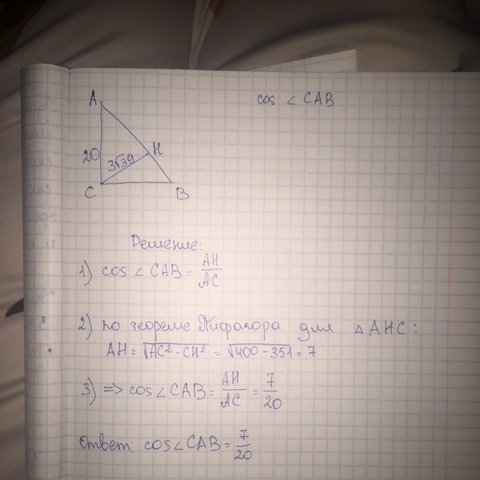 cos ∠ CAB
A
20
3√39
H
C
B
Решение:
1) cos ∠ CAB = AH/AC
2) по теореме Пифагора для △ AHC:
AH = √AC² - CH² = √400 - 351 = 7
3) => cos ∠ CAB = AH/AC = 7/20
Ответ: cos ∠ CAB = 7/20